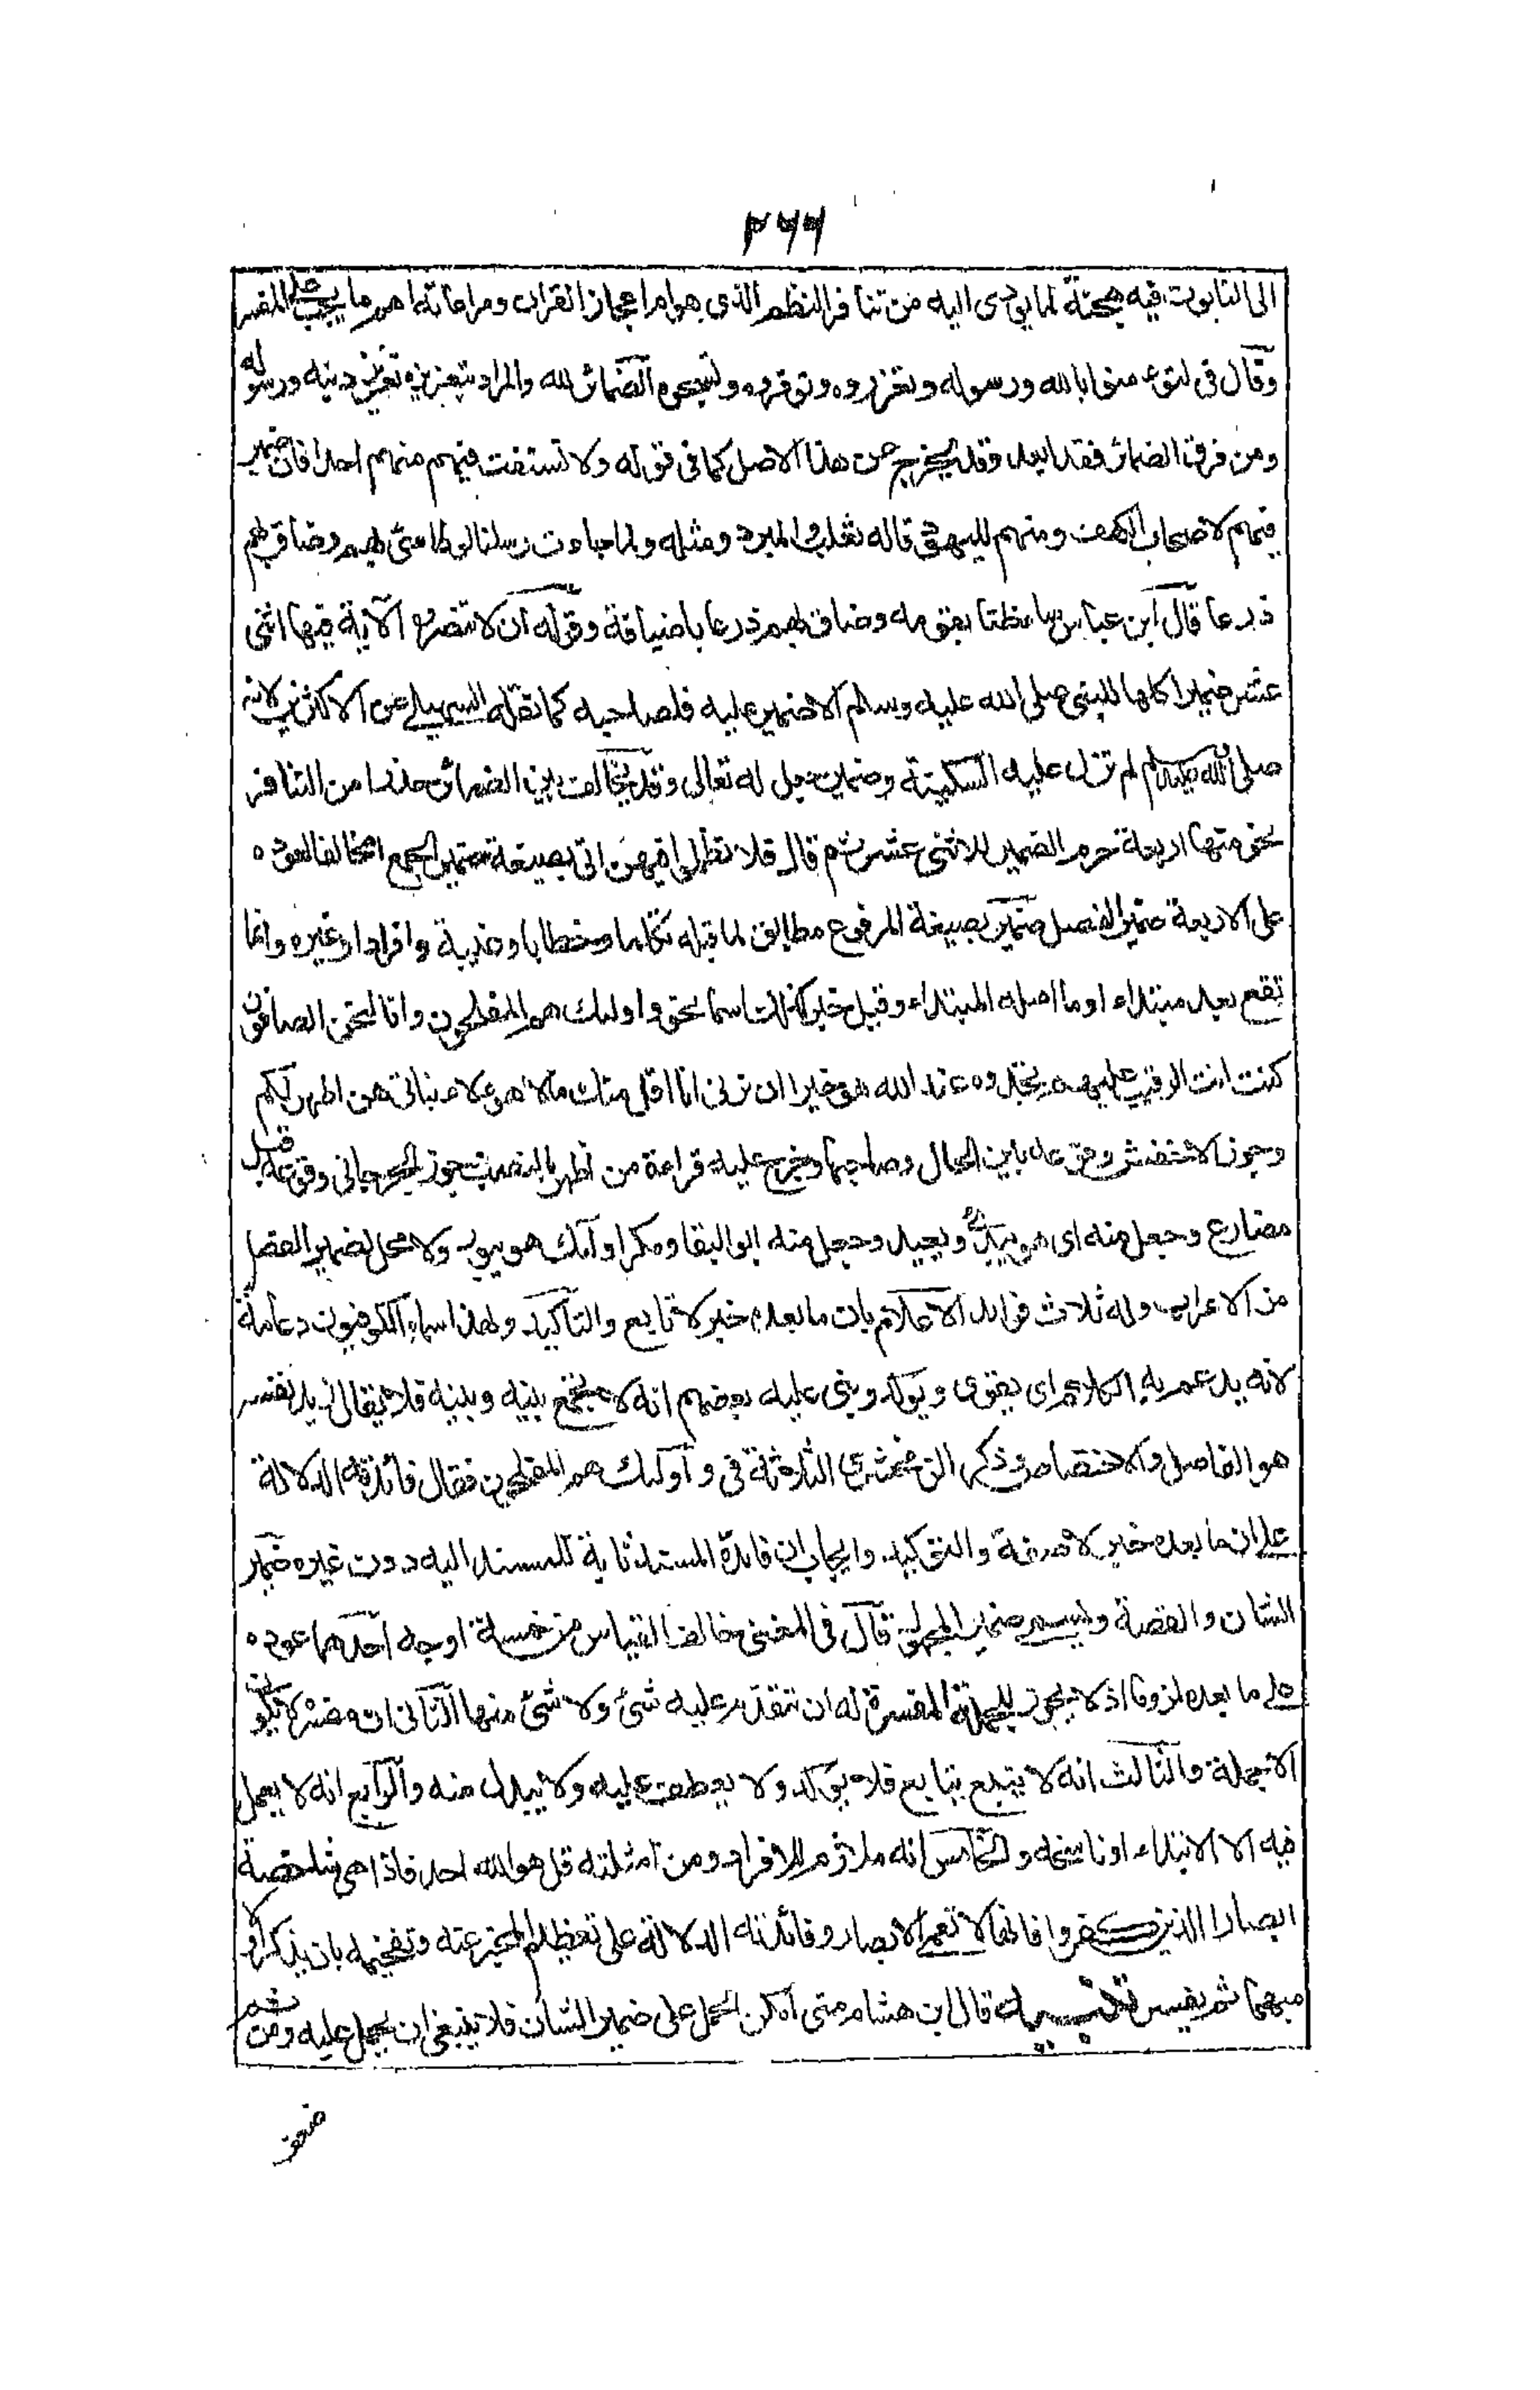 ٢٦٦
الى التابوت فيه هجنة لما يودى اليه من تنافر النظم الذى هو ام اعجاز القران ومراعاته اهم ما يجب على المفسر
وقال فى لتومنوا بالله ورسوله وتعزروه وتوقروه وتسبحوه الضمائر لله والمراد بتعزيزه تعزيز دينه ورسوله
ومن فرق الضمائر فقد ابعد وقد يخرج عن هذا الاصل كما فى قوله ولا تستفت فيهم منهم احدا فان ضمير
فيهم لاصحاب الكهف ومنهم لليهود قاله ثعلب والمبرد ومثله ولما جاءت رسلنا لوطا سئ بهم وضاق بهم
ذرعا قال ابن عباس ساء ظنا بقومه وضاق بهم ذرعا باضيافه وقوله ان لا تنصروه الآية فيها اثنى
عشر ضميرا كلها للنبى صلى الله عليه وسلم الا ضمير عليه فلصاحبه كما نقله السهيلى عن الاكثرين لانه
صلى الله عليه وسلم لم تنزل عليه السكينة وضمير جعل له تعالى وقد يخالف بين الضمائر حذرا من التنافر
نحو منها اربعة حرم الضمير للاثنى عشر ثم قال فلا تظلموا فيهن اتى بصيغة ضمير الجمع مخالفا لعوده
على الاربعة ضمير الفصل ضمير بصيغة المرفوع مطابق لما قبله تكلما وخطابا وغيبة وافرادا وغيره وانما
تقع بعد مبتداء او ما اصله المبتداء وقبل خبر كذلك اسما نحو واولئك هم المفلحون وانا لنحن الصافون
كنت انت الرقيب عليهم تجدوه عند الله هو خيرا ان ترنى انا اقل منك مالا هولاء بناتى هن اطهر لكم
وجوز الاخفش وقوعه بين الحال وصاحبها وخرج عليه قراءة من اطهر بالنصب وجوز الجرجانى وقوعه قبل
مضارع وجعل منه اى هو يبدئ ويعيد وجعل منه ابو البقا ومكر اولئك هو يبور ولا محل لضمير الفصل
من الاعراب وله ثلاث فوايد الاعلام بان ما بعده خبر لا تابع والتاكيد ولهذا سماه الكوفيون دعامة
لانه يدعم به الكلام اى يقوى ويوكد وبنى عليه بعضهم انه لا يجمع بينه وبينه فلا يقال زيد نفسه
هو الفاضل والاختصاص وذكر الزمخشرى الثلاثة فى واولئك هم المفلحون فقال فائدته الدلالة
على ان ما بعده خبر لا صفة والتوكيد وايجاب ان فايدة المسند ثابتة للمسند اليه دون غيره ضمير
الشان والقصة ويسمى ضمير المجهول قال فى المغنى خالف القياس من خمسة اوجه احدها عوده
على ما بعده لزوما اذ لا يجوز للجملة المفسرة له ان تتقدم عليه شئ ولا شئ منها الثانى ان مفسره لا يكون
الا جملة والثالث انه لا يتبع بتابع فلا يوكد ولا يعطف عليه ولا يبدل منه والرابع انه لا يعمل
فيه الا الابتداء او ناسخه والخامس انه ملازم للافراد ومن امثلته قل هو الله احد فاذا هى شاخصة
ابصار الذين كفروا فانها لا تعمى الابصار وفائدته الدلالة على تعظيم المخبر عنه وتفخيمه بان يذكر اولا
مبهما ثم يفسر تنبيه قال ابن هشام متى امكن الحمل على ضمير الشان فلا ينبغى ان يحمل عليه ومن ثم
ضعف